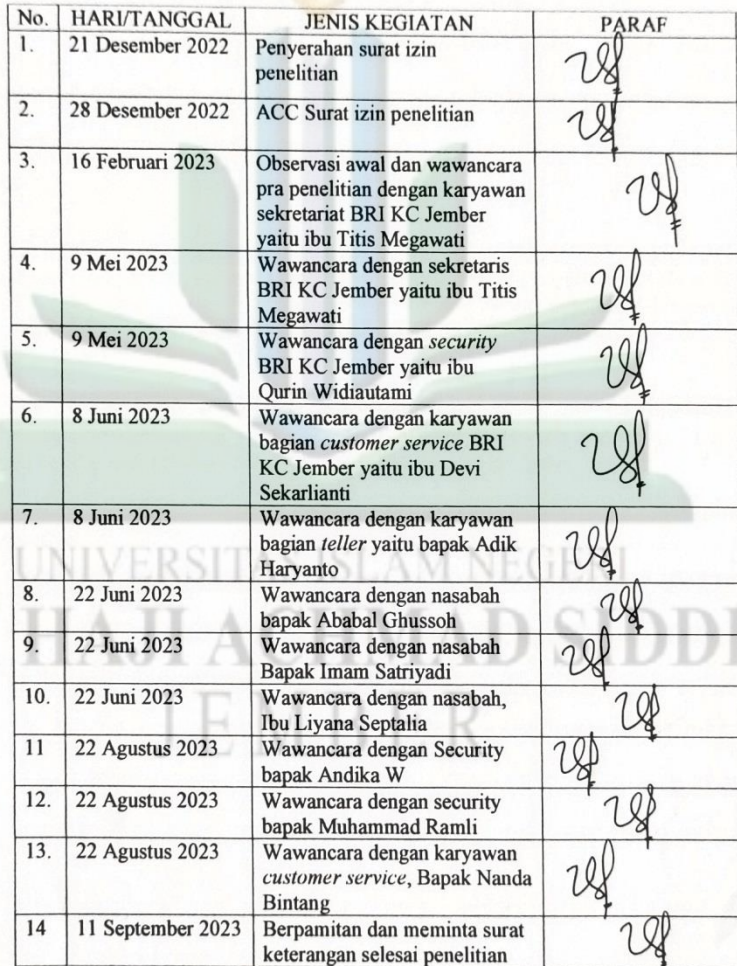 No. HARI/TANGGAL JENIS KEGIATAN PARAF
1. 21 Desember 2022 Penyerahan surat izin
penelitian
2. 28 Desember 2022 ACC Surat izin penelitian
3. 16 Februari 2023 Observasi awal dan wawancara
pra penelitian dengan karyawan
sekretariat BRI KC Jember
yaitu ibu Titis Megawati
4. 9 Mei 2023 Wawancara dengan sekretaris
BRI KC Jember yaitu ibu Titis
Megawati
5. 9 Mei 2023 Wawancara dengan security
BRI KC Jember yaitu ibu
Qurin Widiautami
6. 8 Juni 2023 Wawancara dengan karyawan
bagian customer service BRI
KC Jember yaitu ibu Devi
Sekarlianti
7. 8 Juni 2023 Wawancara dengan karyawan
bagian teller yaitu bapak Adik
Haryanto
8. 22 Juni 2023 Wawancara dengan nasabah
bapak Ababal Ghussoh
9. 22 Juni 2023 Wawancara dengan nasabah
Bapak Imam Satriyadi
10. 22 Juni 2023 Wawancara dengan nasabah,
Ibu Liyana Septalia
11 22 Agustus 2023 Wawancara dengan Security
bapak Andika W
12. 22 Agustus 2023 Wawancara dengan security
bapak Muhammad Ramli
13. 22 Agustus 2023 Wawancara dengan karyawan
customer service, Bapak Nanda
Bintang
14 11 September 2023 Berpamitan dan meminta surat
keterangan selesai penelitian
UNIVERSITAS ISLAM NEGERI
HAJI ACHMAD SIDDI
JEMBER